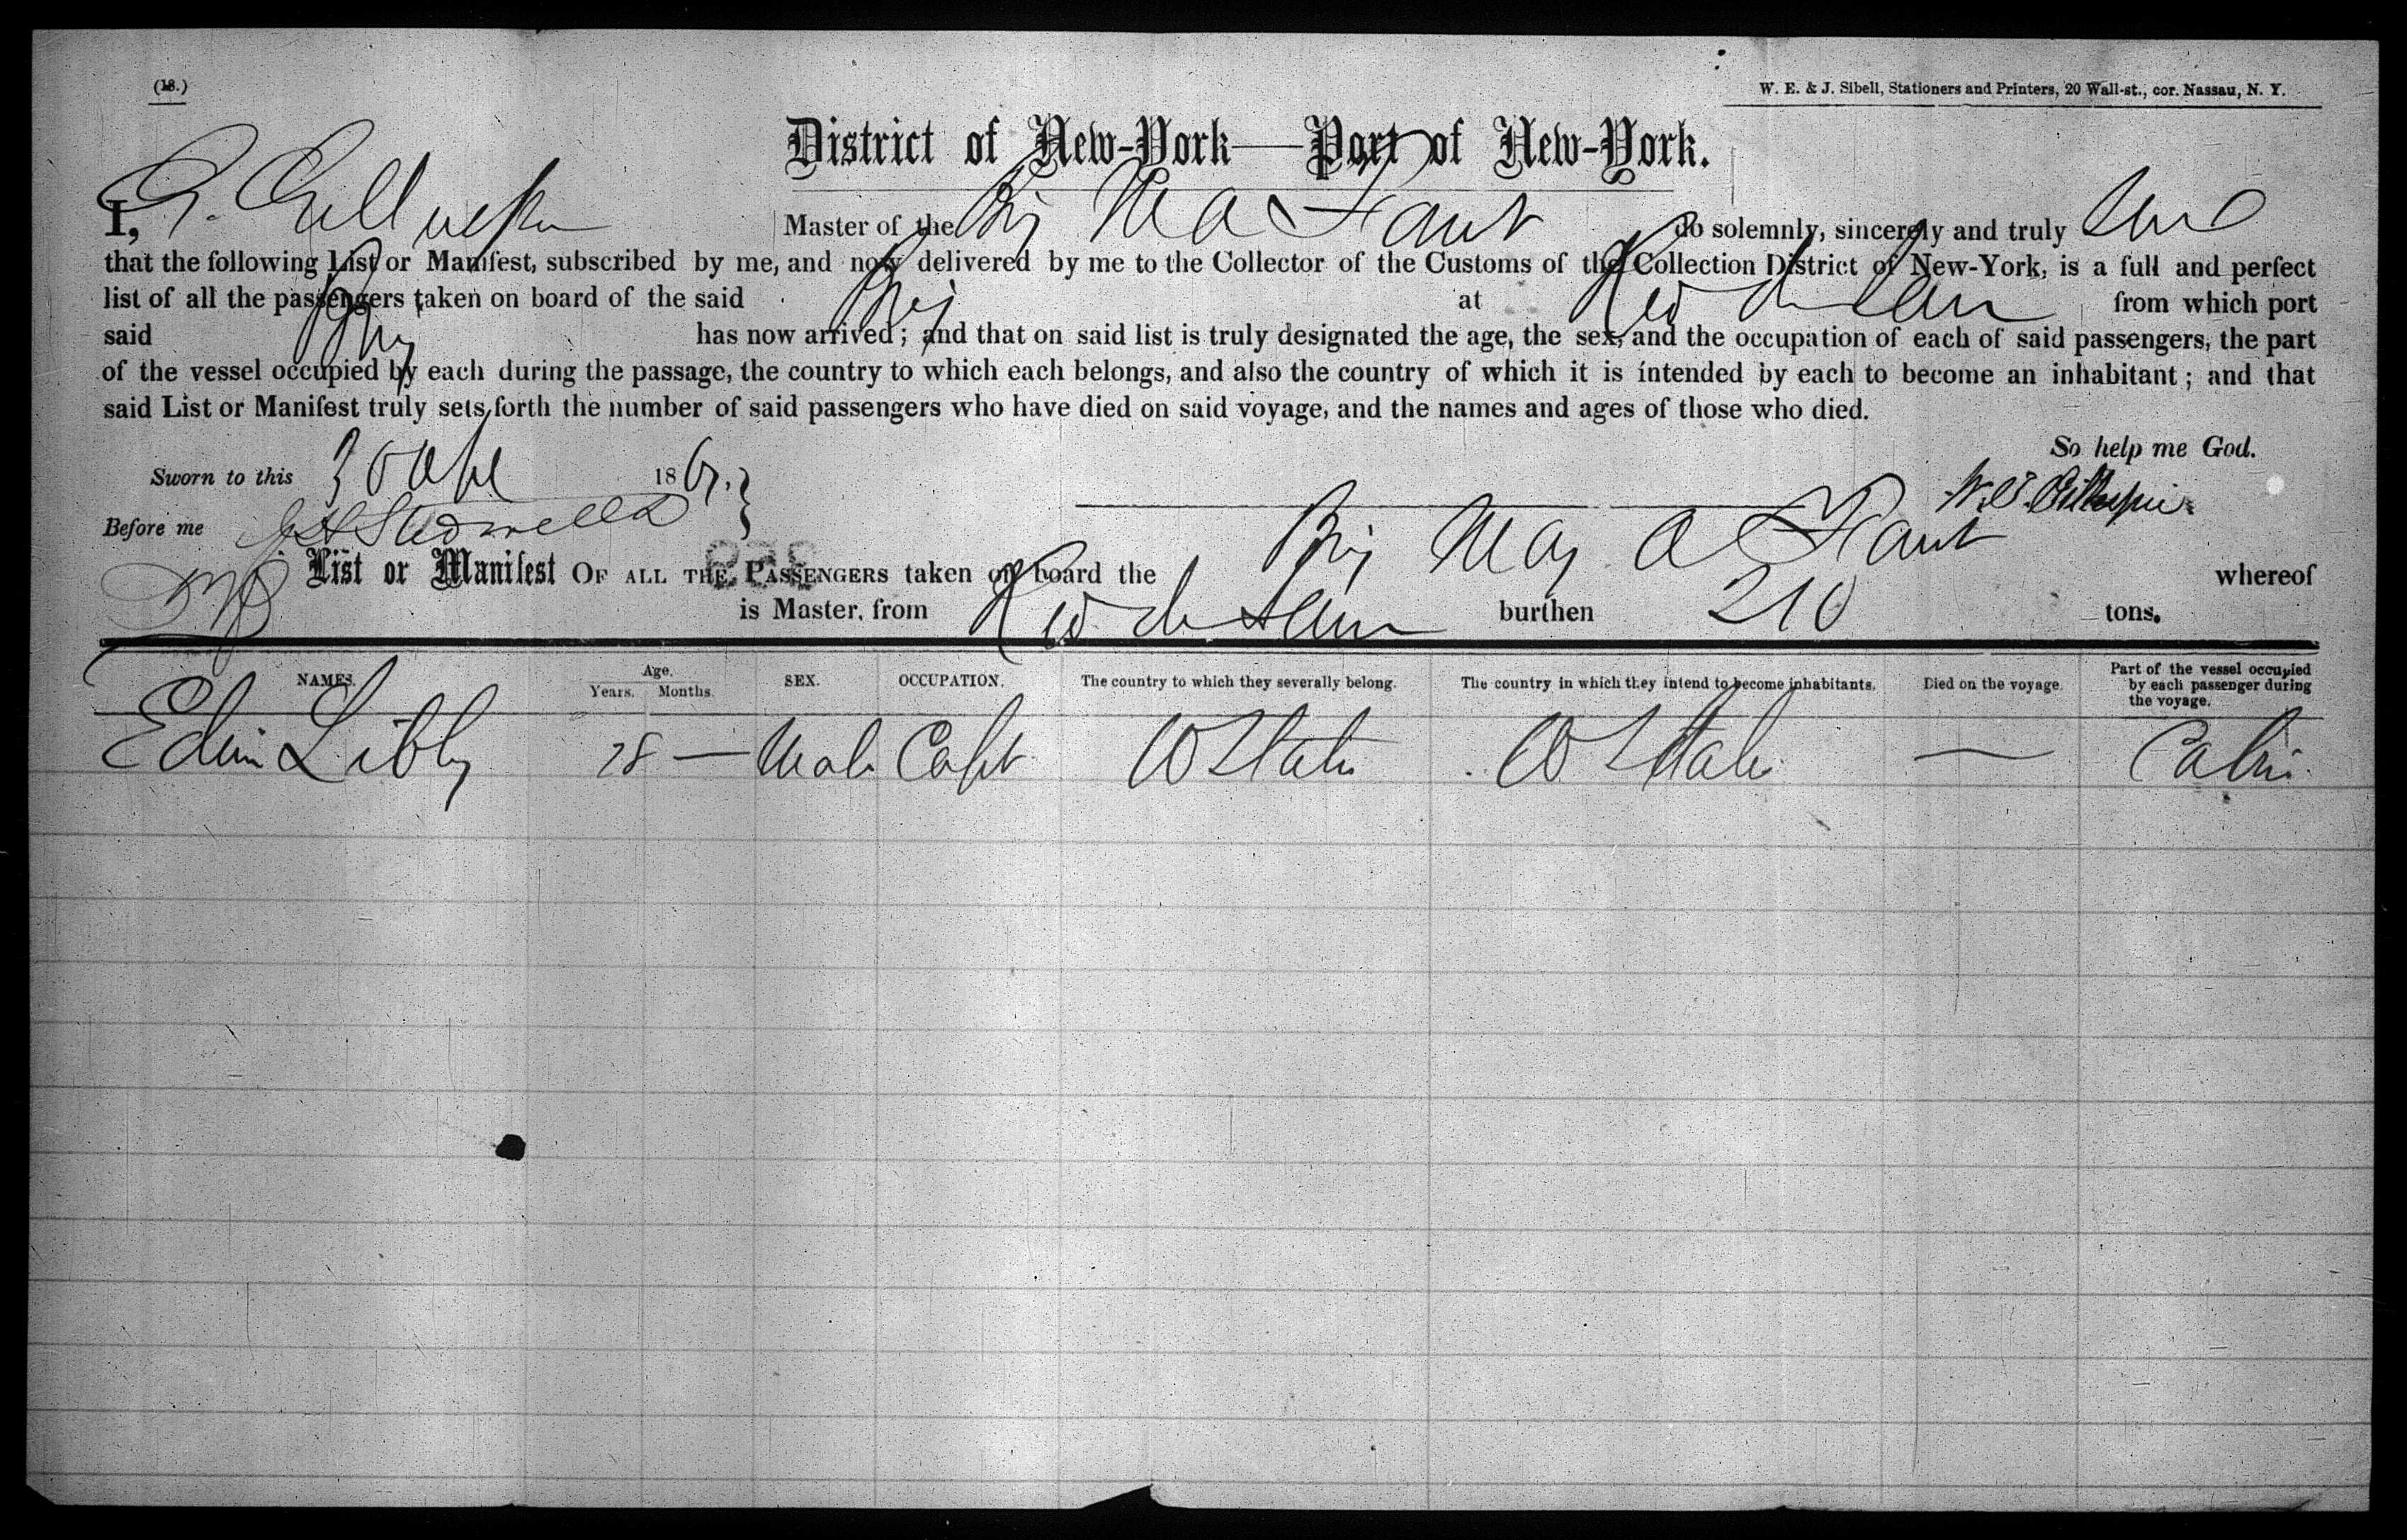 (18.)
W. E. & J. Sibell, Stationers and Printers, 20 Wall-st., cor. Nassau, N. Y.
District of New-York—Port of New-York.
I, Master of the Brig do solemnly, sincerely and truly
that the following List or Manifest, subscribed by me, and now delivered by me to the Collector of the Customs of the Collection District of New-York, is a full and perfect
list of all the passengers taken on board of the said Brig at from which port
said Brig has now arrived; and that on said list is truly designated the age, the sex, and the occupation of each of said passengers, the part
of the vessel occupied by each during the passage, the country to which each belongs, and also the country of which it is intended by each to become an inhabitant; and that
said List or Manifest truly sets forth the number of said passengers who have died on said voyage, and the names and ages of those who died.
So help me God.
Sworn to this 30 186
Before me
List or Manifest OF ALL THE PASSENGERS taken on board the Brig whereof
is Master, from burthen 210 tons.
NAMES. Age. Years. Months. SEX. OCCUPATION. The country to which they severally belong. The country in which they intend to become inhabitants. Died on the voyage. Part of the vessel occupied by each passenger during the voyage.
Libby 28 — Male Capt U States U States — Cabin